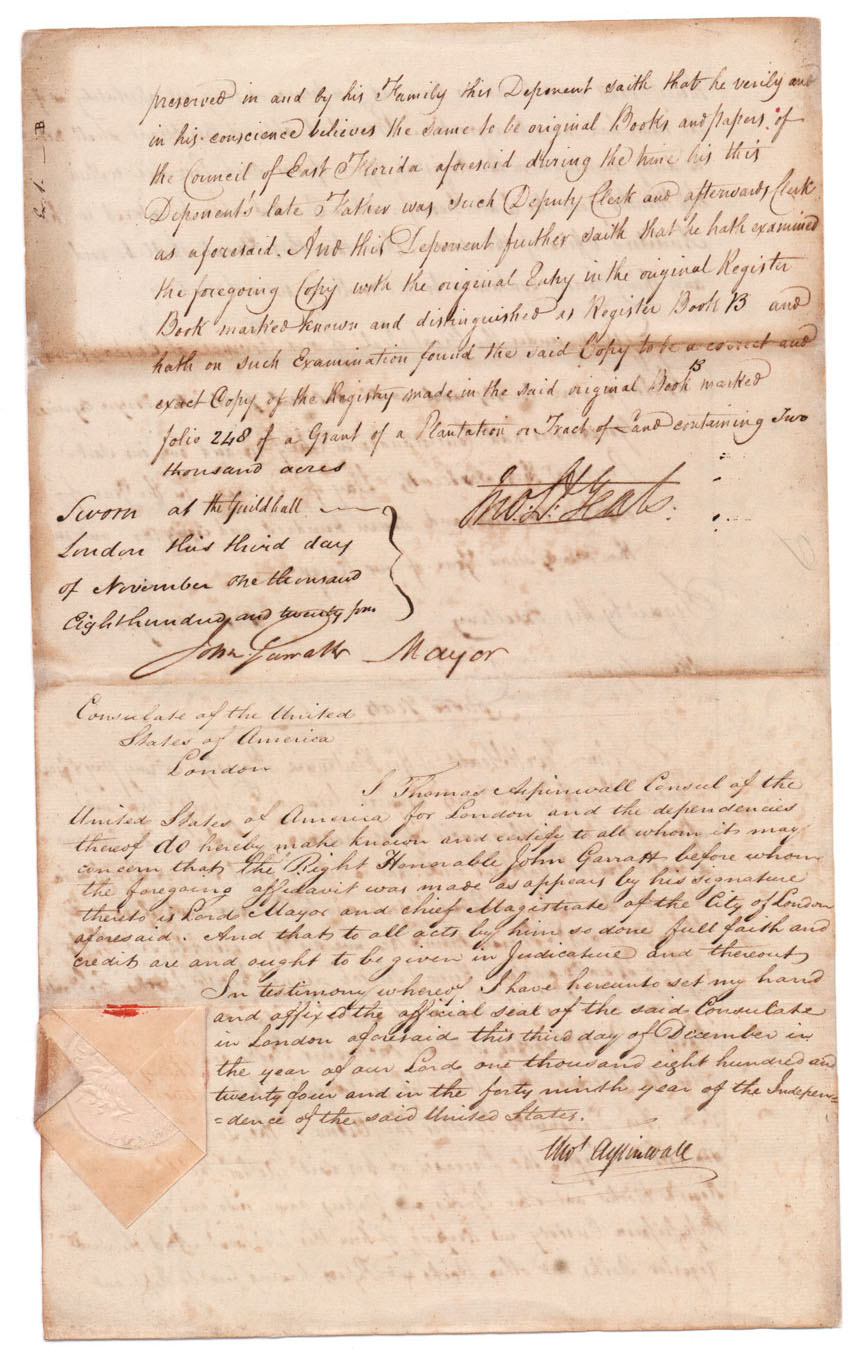 preserved in and by his Family this Deponent saith that he verily and
in his conscience believes the same to be original Books and papers of
the Council of East Florida aforesaid during the time his this
Deponent's late Father was such Deputy Clerk and afterwards Clerk
as aforesaid. And this Deponent further saith that he hath examined
the foregoing Copy with the original Entry in the original Register
Book marked known and distinguished as Register Book B and
hath on such Examination found the said Copy to be a correct and
exact Copy of the Registry made in the said original Book B marked
folio 248 of a Grant of a Plantation or Tract of Land containing Two
thousand acres
Jno. 
Sworn at the Guildhall
London this third day
of November One thousand
Eight hundred and twenty four
John Garratt Mayor
Consulate of the United
States of America
London
I Thomas Aspinwall Consul of the
United States of America for London and the dependencies
thereof do hereby make known and certify to all whom it may
concern that the Right Honorable John Garratt before whom
the foregoing affidavit was made as appears by his signature
thereto is Lord Mayor and chief Magistrate of the City of London
aforesaid. And that to all acts by him so done full faith and
credit are and ought to be given in Judicature and thereout
In testimony whereof I have hereunto set my hand
and affixed the official seal of the said Consulate
in London aforesaid this third day of December in
the year of our Lord one thousand eight hundred and
twenty four and in the forty ninth year of the Indepen=
=dence of the said United States.
Thos Aspinwall